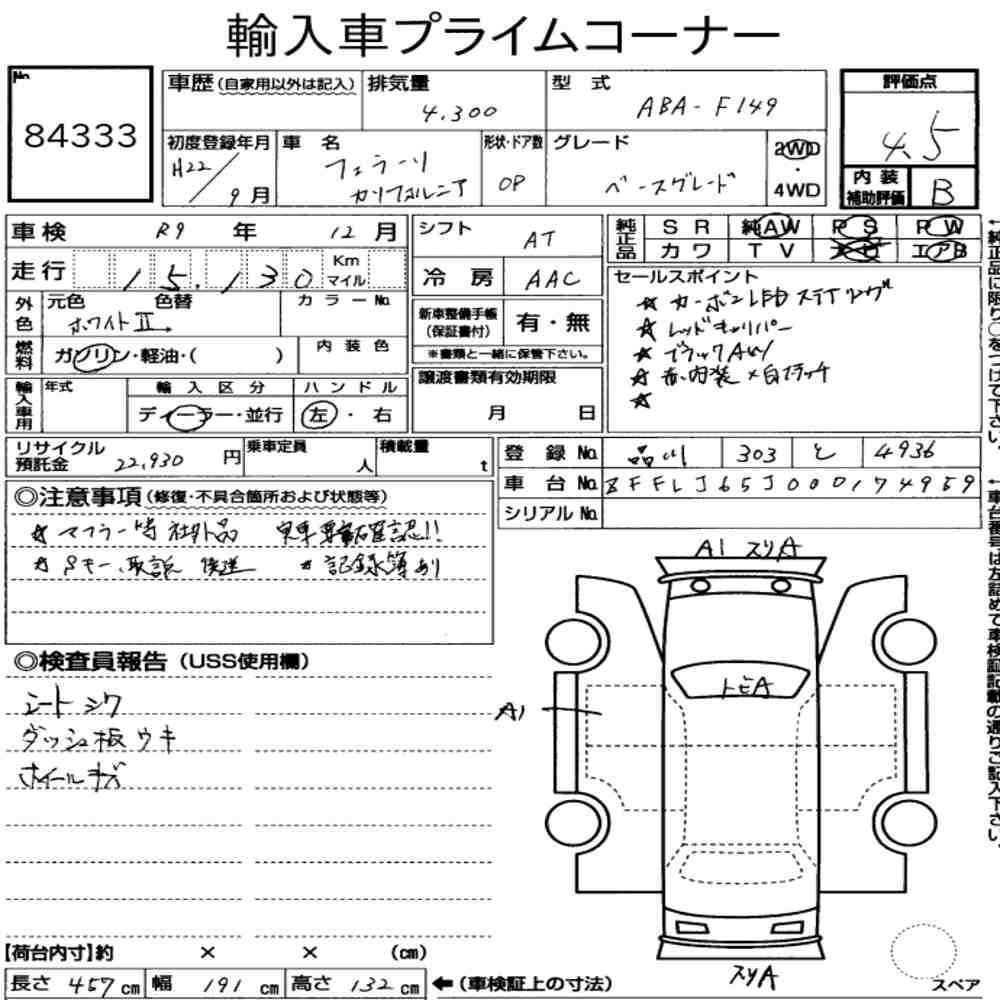 輸入車プライムコーナー
No. 84333
車歴 (自家用以外は記入)
排気量 4,300
型式 ABA-F149
評価点 4.5
初度登録年月 H22/9月
車名 フェラーリ カリフォルニア
形状・ドア数 OP
グレード ベースグレード
2WD・4WD
内装補助評価 B
車検 R9年 12月
シフト AT
純正品 SR 純AW PS PW
カワ TV エアB
走行 15,130 Km マイル
冷房 AAC
セールスポイント
☆ カーボンLEDステアリング
☆ レッドキャリパー
☆ ブラックAW
☆ 赤内装×白ステッチ
☆
外色 元色 ホワイトⅡ 色替 カラーNo.
新車整備手帳(保証書付) 有・無
※書類と一緒に保管下さい。
燃料 ガソリン・軽油・( ) 内装色
譲渡書類有効期限 月 日
輸入車用 年式 輸入区分 ハンドル
ディーラー・並行 左・右
リサイクル預託金 22,930円
乗車定員 人
積載量 t
登録No. 品川 303 と 4936
車台No. ZFFLJ65J000174959
シリアルNo.
◎注意事項 (修復・不具合箇所および状態等)
☆ マフラー等 社外品 実車要確認!!
☆ Sキー、取説 後送 ☆ 記録簿あり
◎検査員報告 (USS使用欄)
シート シワ
ダッシュ板 ウキ
ホイールキズ
A1 スリA
トビA
A1
スリA
スペア
【荷台内寸】約 × × (cm)
長さ 457cm 幅 191cm 高さ 132cm ←(車検証上の寸法)
←純正品に限り○をつけて下さい。
←車台番号は左詰めで車検証記載の通りご記入下さい。